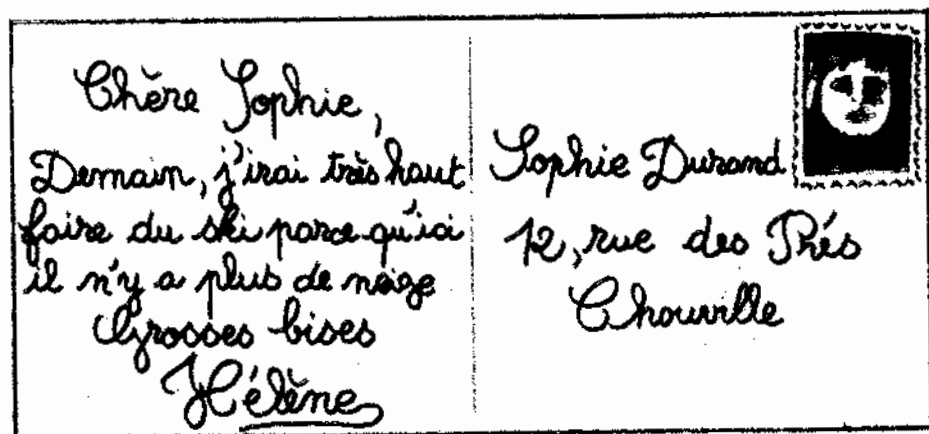 Chère Sophie,
Demain, j'irai très haut
faire du ski parce qu'ici
il n'y a plus de neige
Grosses bises
Hélène
Sophie Durand
12, rue des Prés
Chouville